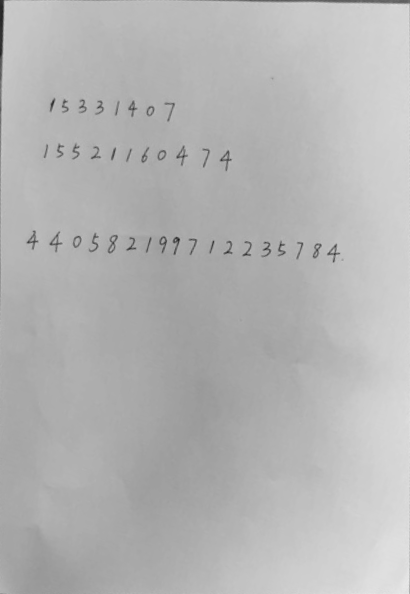 15331407
15521160474
440582199712235784